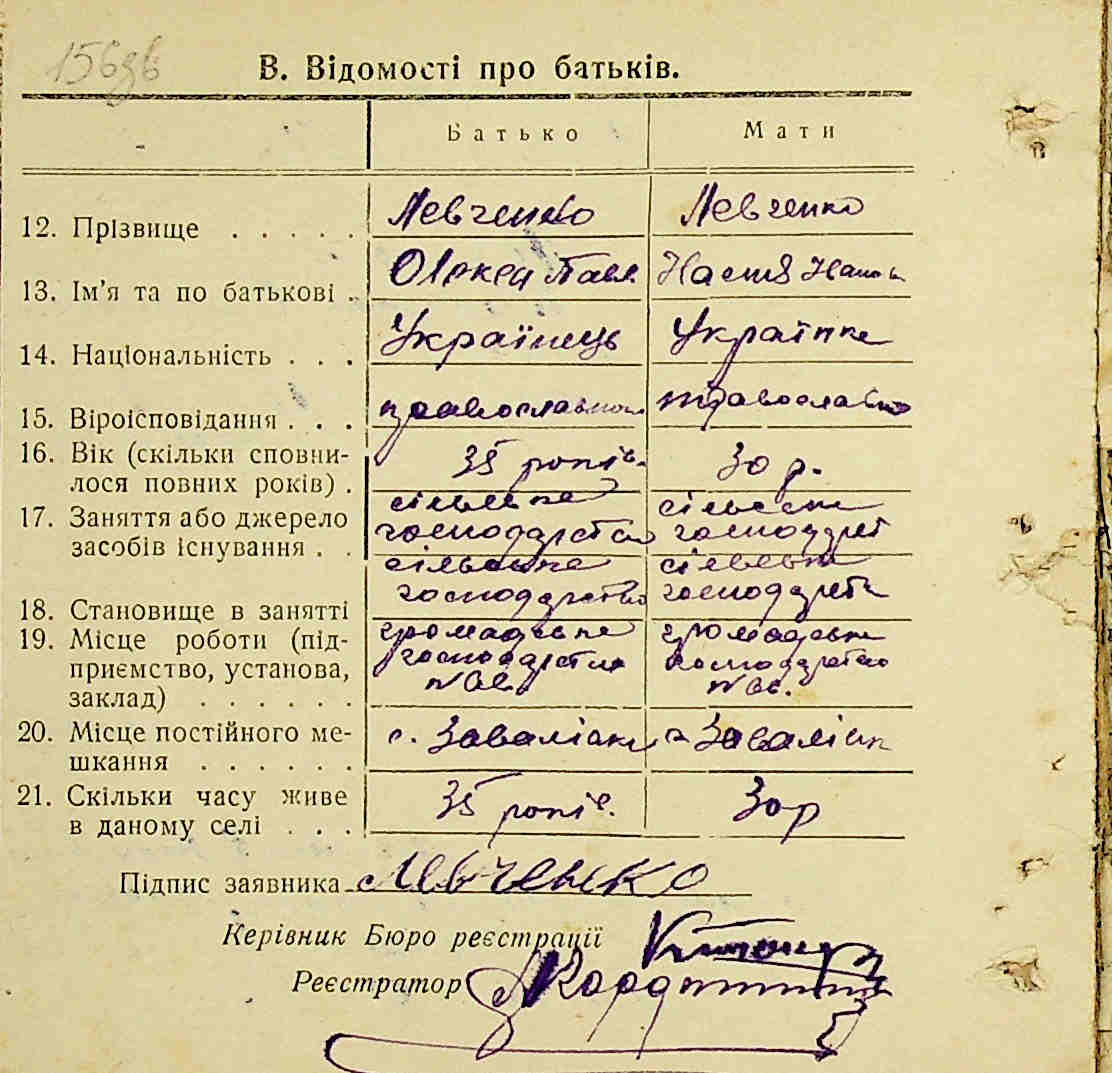 156зв
В. Відомості про батьків.
Батько Мати
12. Прізвище . . . . . Левченко Левченко
13. Ім'я та по батькові . Олекса Павл. Настя
14. Національність . . . Українець Українка
15. Віроісповідання . . . православної православна
16. Вік (скільки сповни-
лося повних років) . 35 років. 30 р.
17. Заняття або джерело сільське сільське
засобів існування . . господарство господарст
сільське сільське
18. Становище в занятті господарство господарств
19. Місце роботи (під- громадське громадське
приємство, установа, господарство господарство
заклад) . . . . . .
20. Місце постійного ме-
шкання . . . . . . с. Заваліски с. Заваліск
21. Скільки часу живе
в даному селі . . . 35 років. 30 р
Підпис заявника Левченко
Керівник Бюро реєстрації
Реєстратор